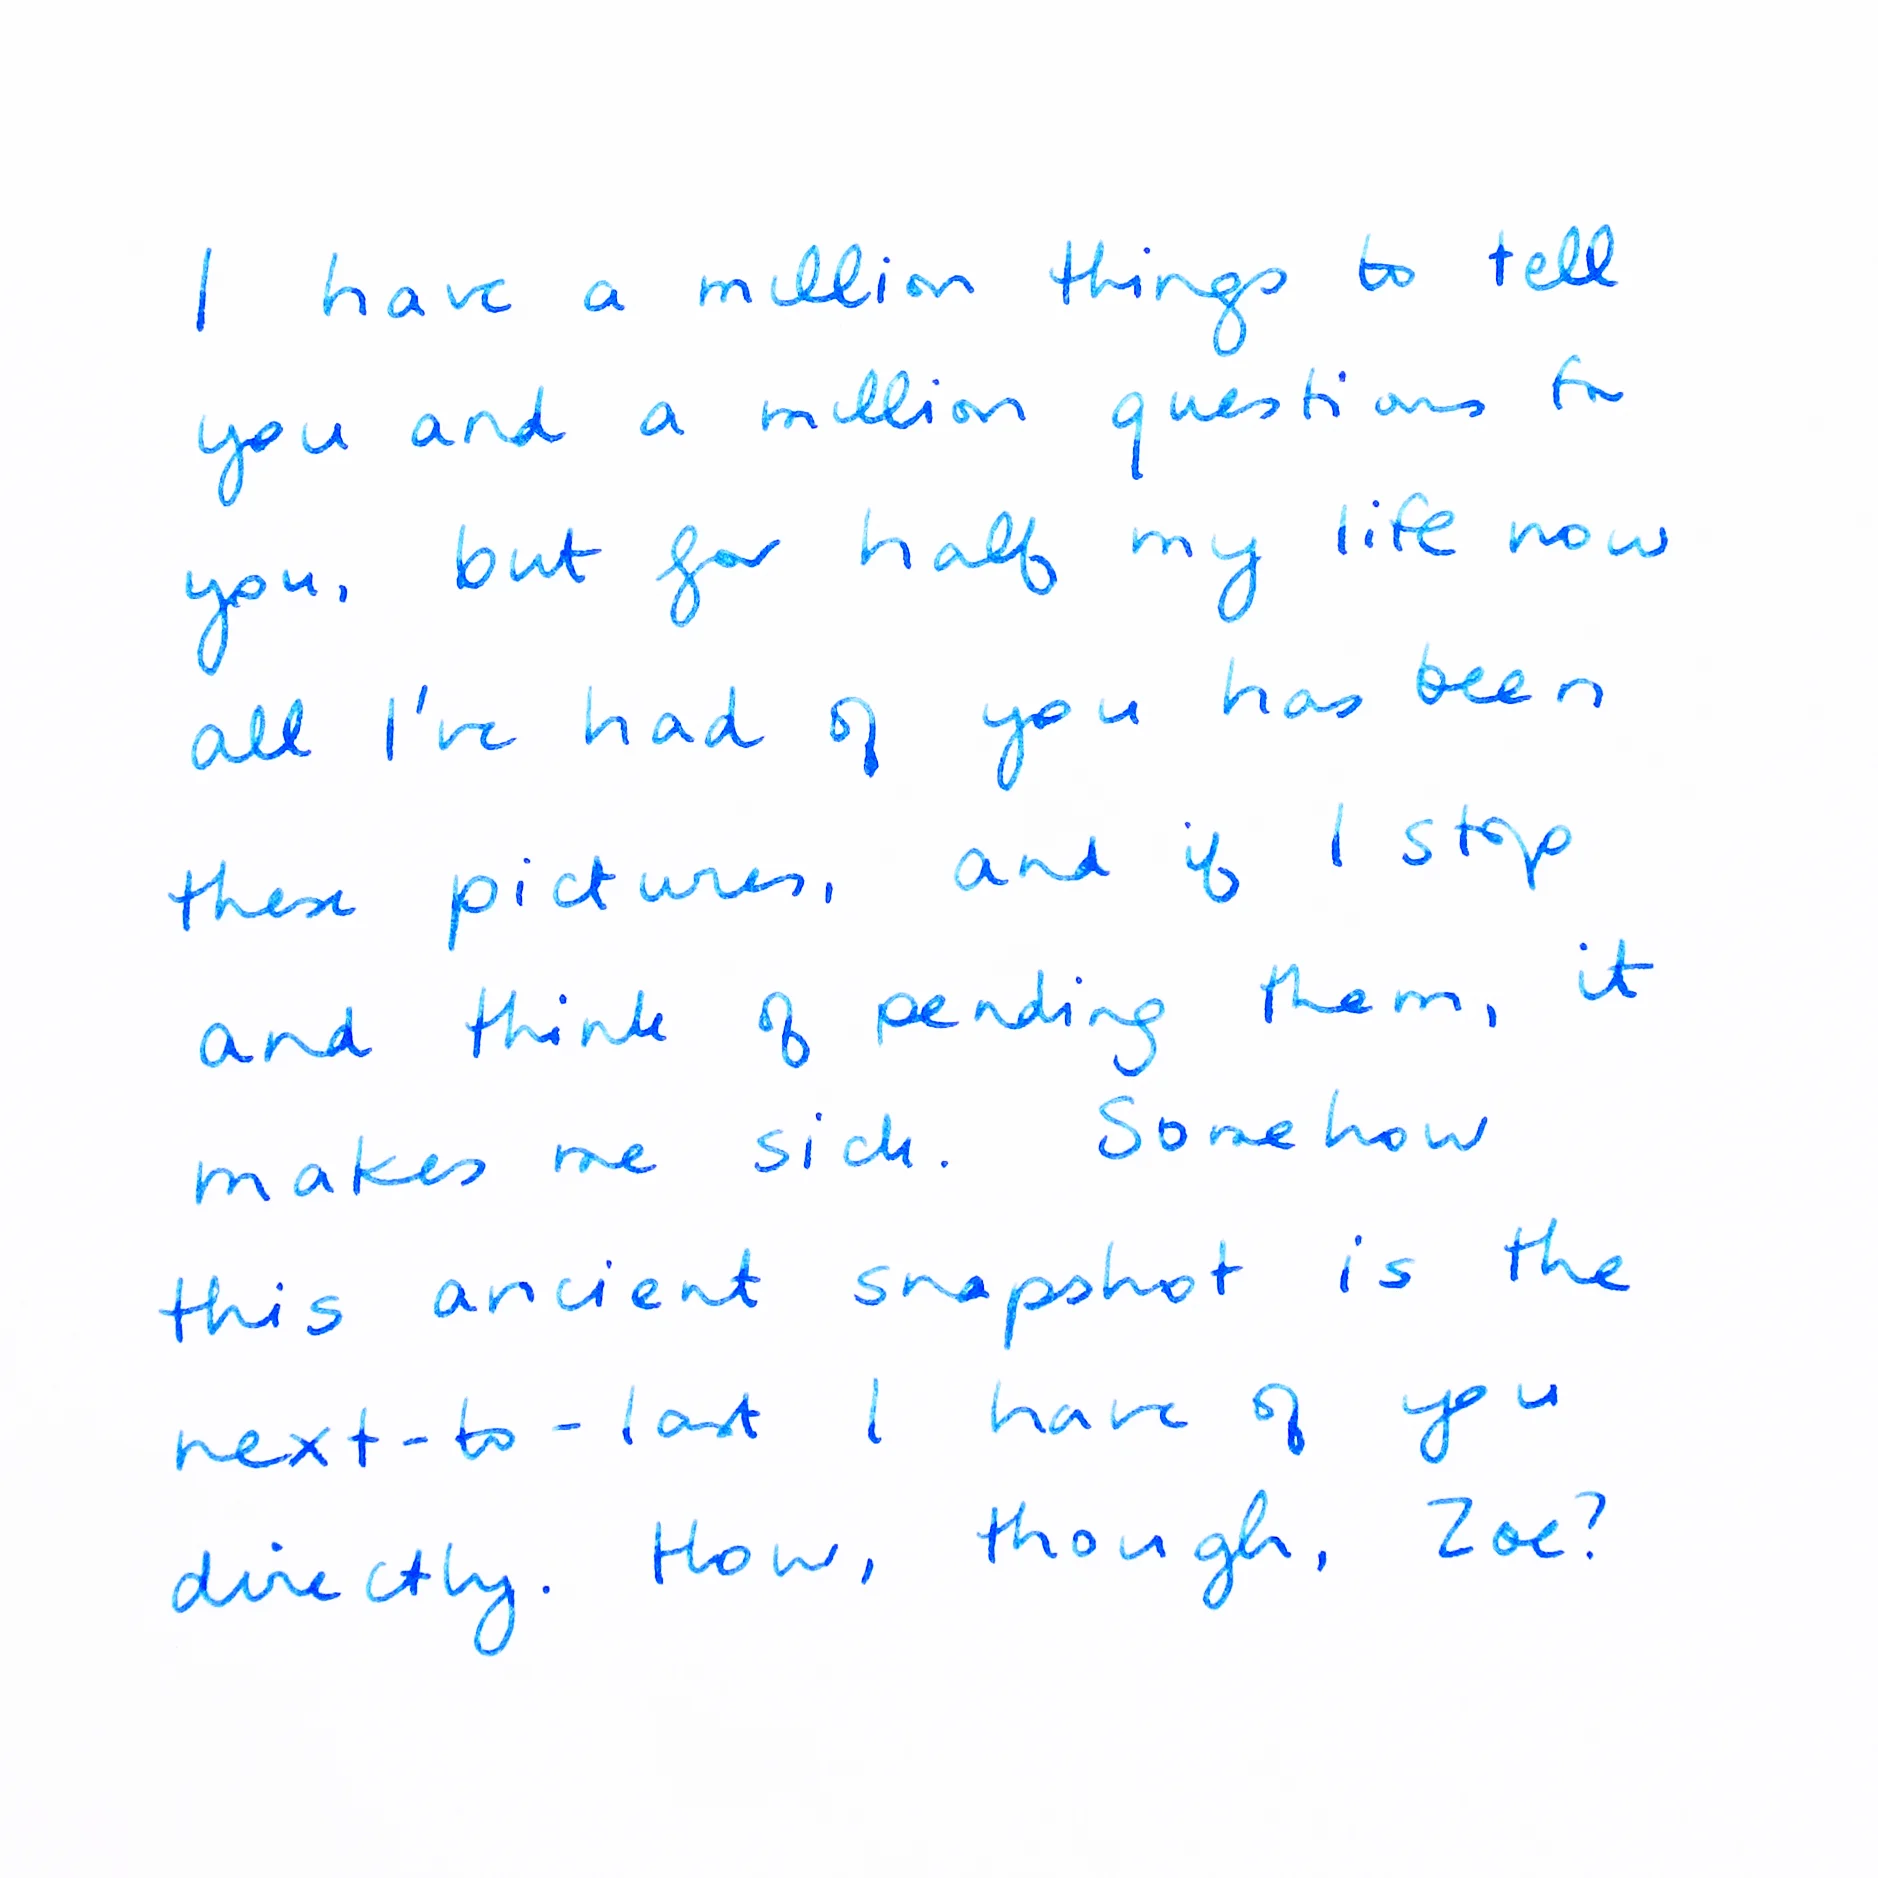 I have a million things to tell
you and a million questions for
you, but for half my life now
all I've had of you has been
these pictures, and if I stop
and think of pending them, it
makes me sick. Somehow
this ancient snapshot is the
next-to-last I have of you
directly. How, though, Zoe?